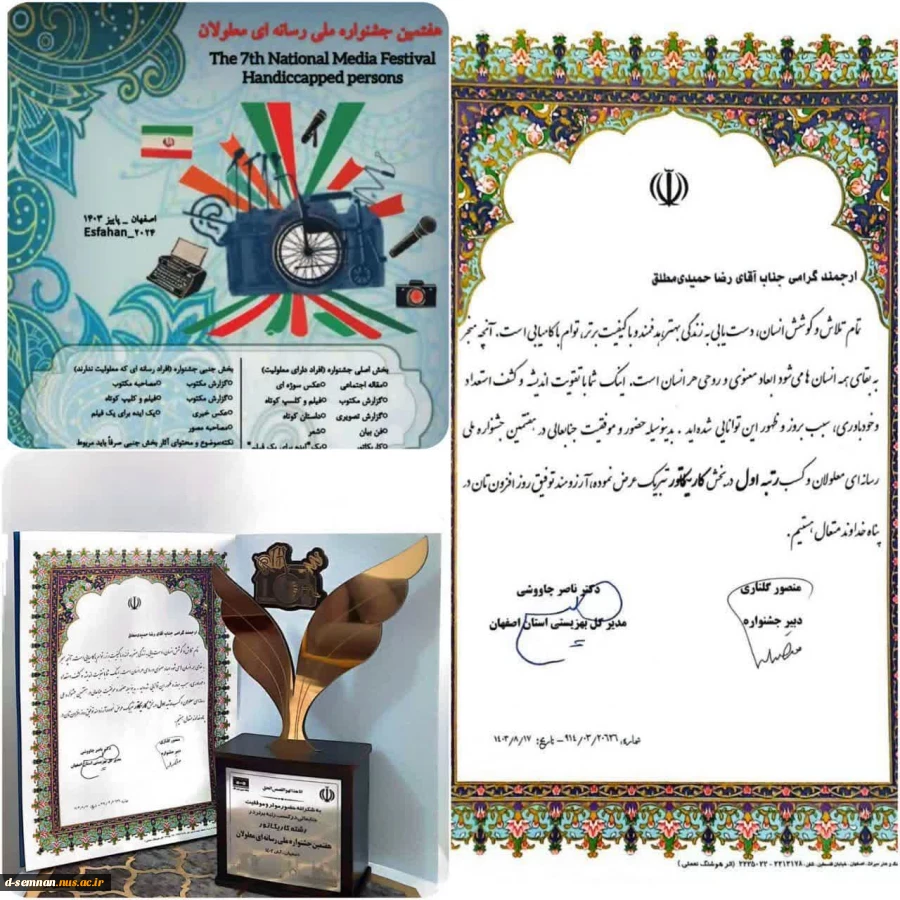 هفتمین جشنواره ملی رسانه ای معلولان
The 7th National Media Festival
Handiccapped persons
اصفهان _ پاییز ۱۴۰۳
Esfahan_۲۰۲۴
بخش اصلی جشنواره (افراد دارای معلولیت)
مقاله اجتماعی
عکس سوژه ای
گزارش مکتوب
فیلم و کلیپ کوتاه
گزارش تصویری
داستان کوتاه
فن بیان
شعر
بخش جنبی جشنواره (افراد رسانه ای که معلولیت ندارند)
گزارش مکتوب
مصاحبه مکتوب
گزارش مکتوب
فیلم و کلیپ کوتاه
عکس خبری
یک ایده برای یک فیلم
مصاحبه مصور
نکته:موضوع و محتوای آثار بخش جنبی صرفاً باید مربوط
ارجمند گرامی جناب آقای رضا حمیدی‌مطلق
تمام تلاش و کوشش انسان، دست یابی به زندگی بهتر، هدفمند و با کیفیت برتر، توام با کامیابی است. آنچه منجر
به بقای همه انسان ها می شود ابعاد معنوی و روحی هر انسان است. اینک شما با تقویت اندیشه و کشف استعداد
و خودباوری، سبب بروز و ظهور این توانایی شده اید. بدینوسیله حضور و موفقیت جنابعالی در هفتمین جشنواره ملی
رسانه ای معلولان و کسب رتبه اول در بخش کاریکاتور تبریک عرض نموده، آرزومند توفیق روز افزون تان در
پناه خداوند متعال هستیم.
منصور گلناری
دبیر جشنواره
دکتر ناصر چاووشی
مدیر کل بهزیستی استان اصفهان
شماره: ۹۱۴/۰۳/۲۰۶۳۶ - تاریخ: ۱۴۰۳/۸/۱۷
ارجمند گرامی جناب آقای رضا حمیدی‌مطلق
منصور گلناری
دبیر جشنواره
دکتر ناصر چاووشی
مدیر کل بهزیستی استان اصفهان
به شکرانه حضور موثر و موفقیت
جنابعالی در کسب رتبه برتر در
رشته کاریکاتور
هفتمین جشنواره ملی رسانه ای معلولان
d-semnan.nus.ac.ir